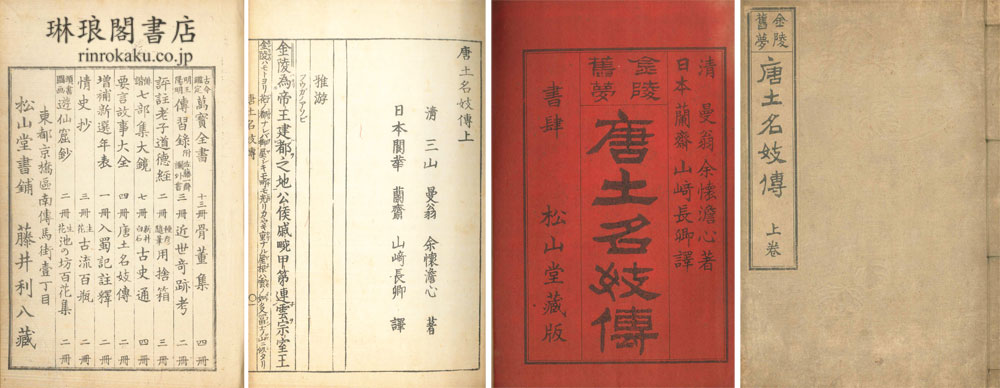 金陵
舊夢
唐土名妓傳
上卷
清 曼翁 余懷澹心著
日本 蘭齋 山﨑長卿譯
金陵
舊夢
唐土名妓傳
書肆
松山堂藏版
唐土名妓傳上
清 三山 曼翁 余懷澹心 著
日本 閬華 蘭齋 山﨑長卿 譯
雅游
金陵為帝王建都之地公侯戚畹甲第連雲宗室王
唐土名妓傳
琳琅閣書店
rinrokaku.co.jp
古今鑑定 萬寶全書 十三冊
骨董集 四冊
王陽明 傳習錄 三冊
近世奇跡考 二冊
評註老子道德經 二冊
用捨箱 三冊
俳諧 七部集大鏡 七冊
古史通 四冊
要言故事大全 四冊
唐土名妓傳 二冊
增補新選年表 一冊
入蜀記註釋 二冊
情史抄 三冊
古流百瓶 二冊
遊仙窟鈔 二冊
池の坊百花集 二冊
東都京橋區南傳馬街壹丁目
松山堂書鋪 藤井利八藏